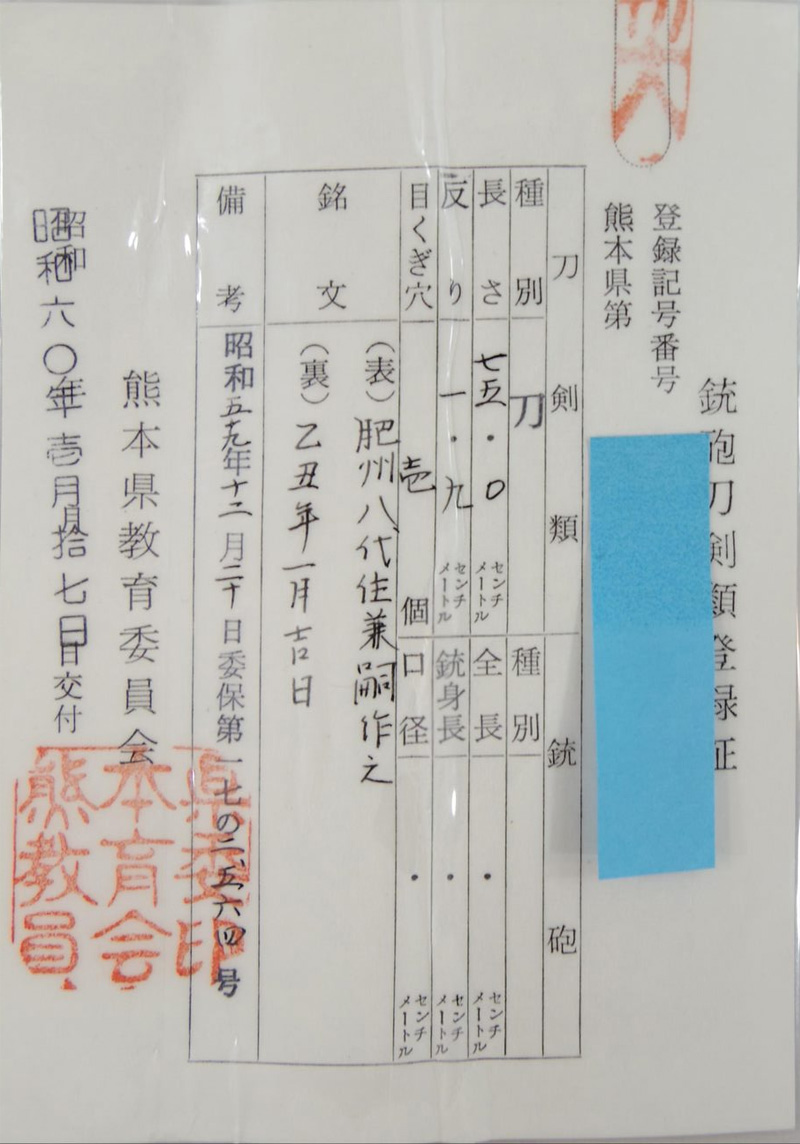 銃砲刀剣類登録証
登録記号番号
熊本県第
刀剣類
銃砲
種別
刀
種別
長さ
七五・〇
センチメートル
全長
・
センチメートル
反り
一・九
センチメートル
銃身長
・
センチメートル
目くぎ穴
壱
個
口径
・
センチメートル
銘文
(表)肥州八代住兼嗣作之
(裏)乙丑年一月吉日
備考
昭和五九年十二月二十日委保第一七の二、五六四号
熊本県教育委員会
昭和六〇年壱月拾七日交付
熊本県教育委員会印